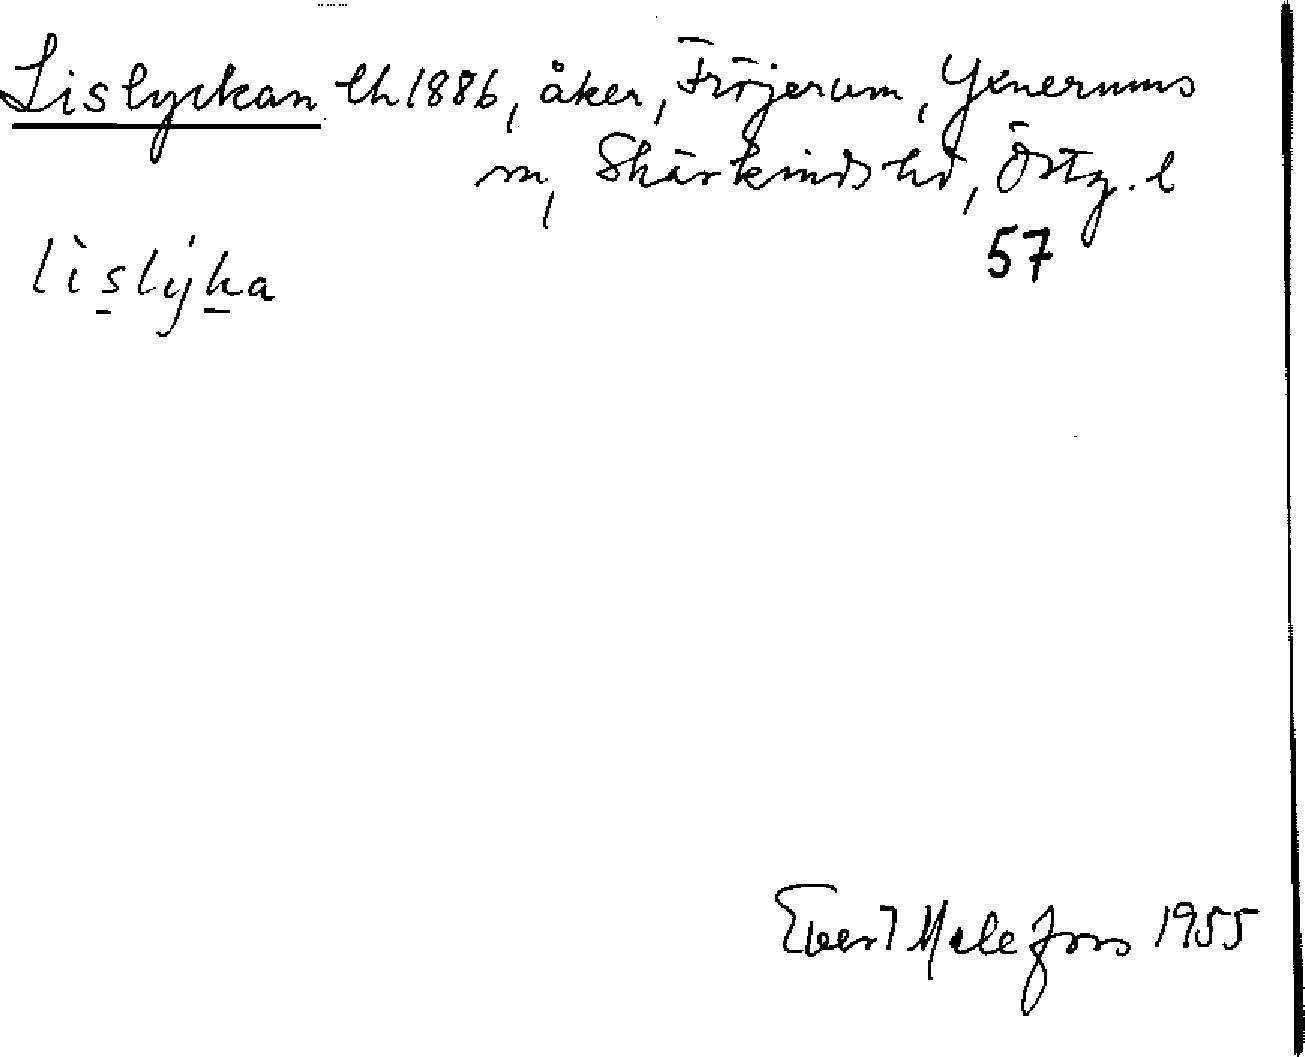 Lislyckan lh 1886, åker, Fröjerum, Yxnerums
sn, Skärkinds hd, Östg. l
57
lìslýka
Evert Melefors 1955